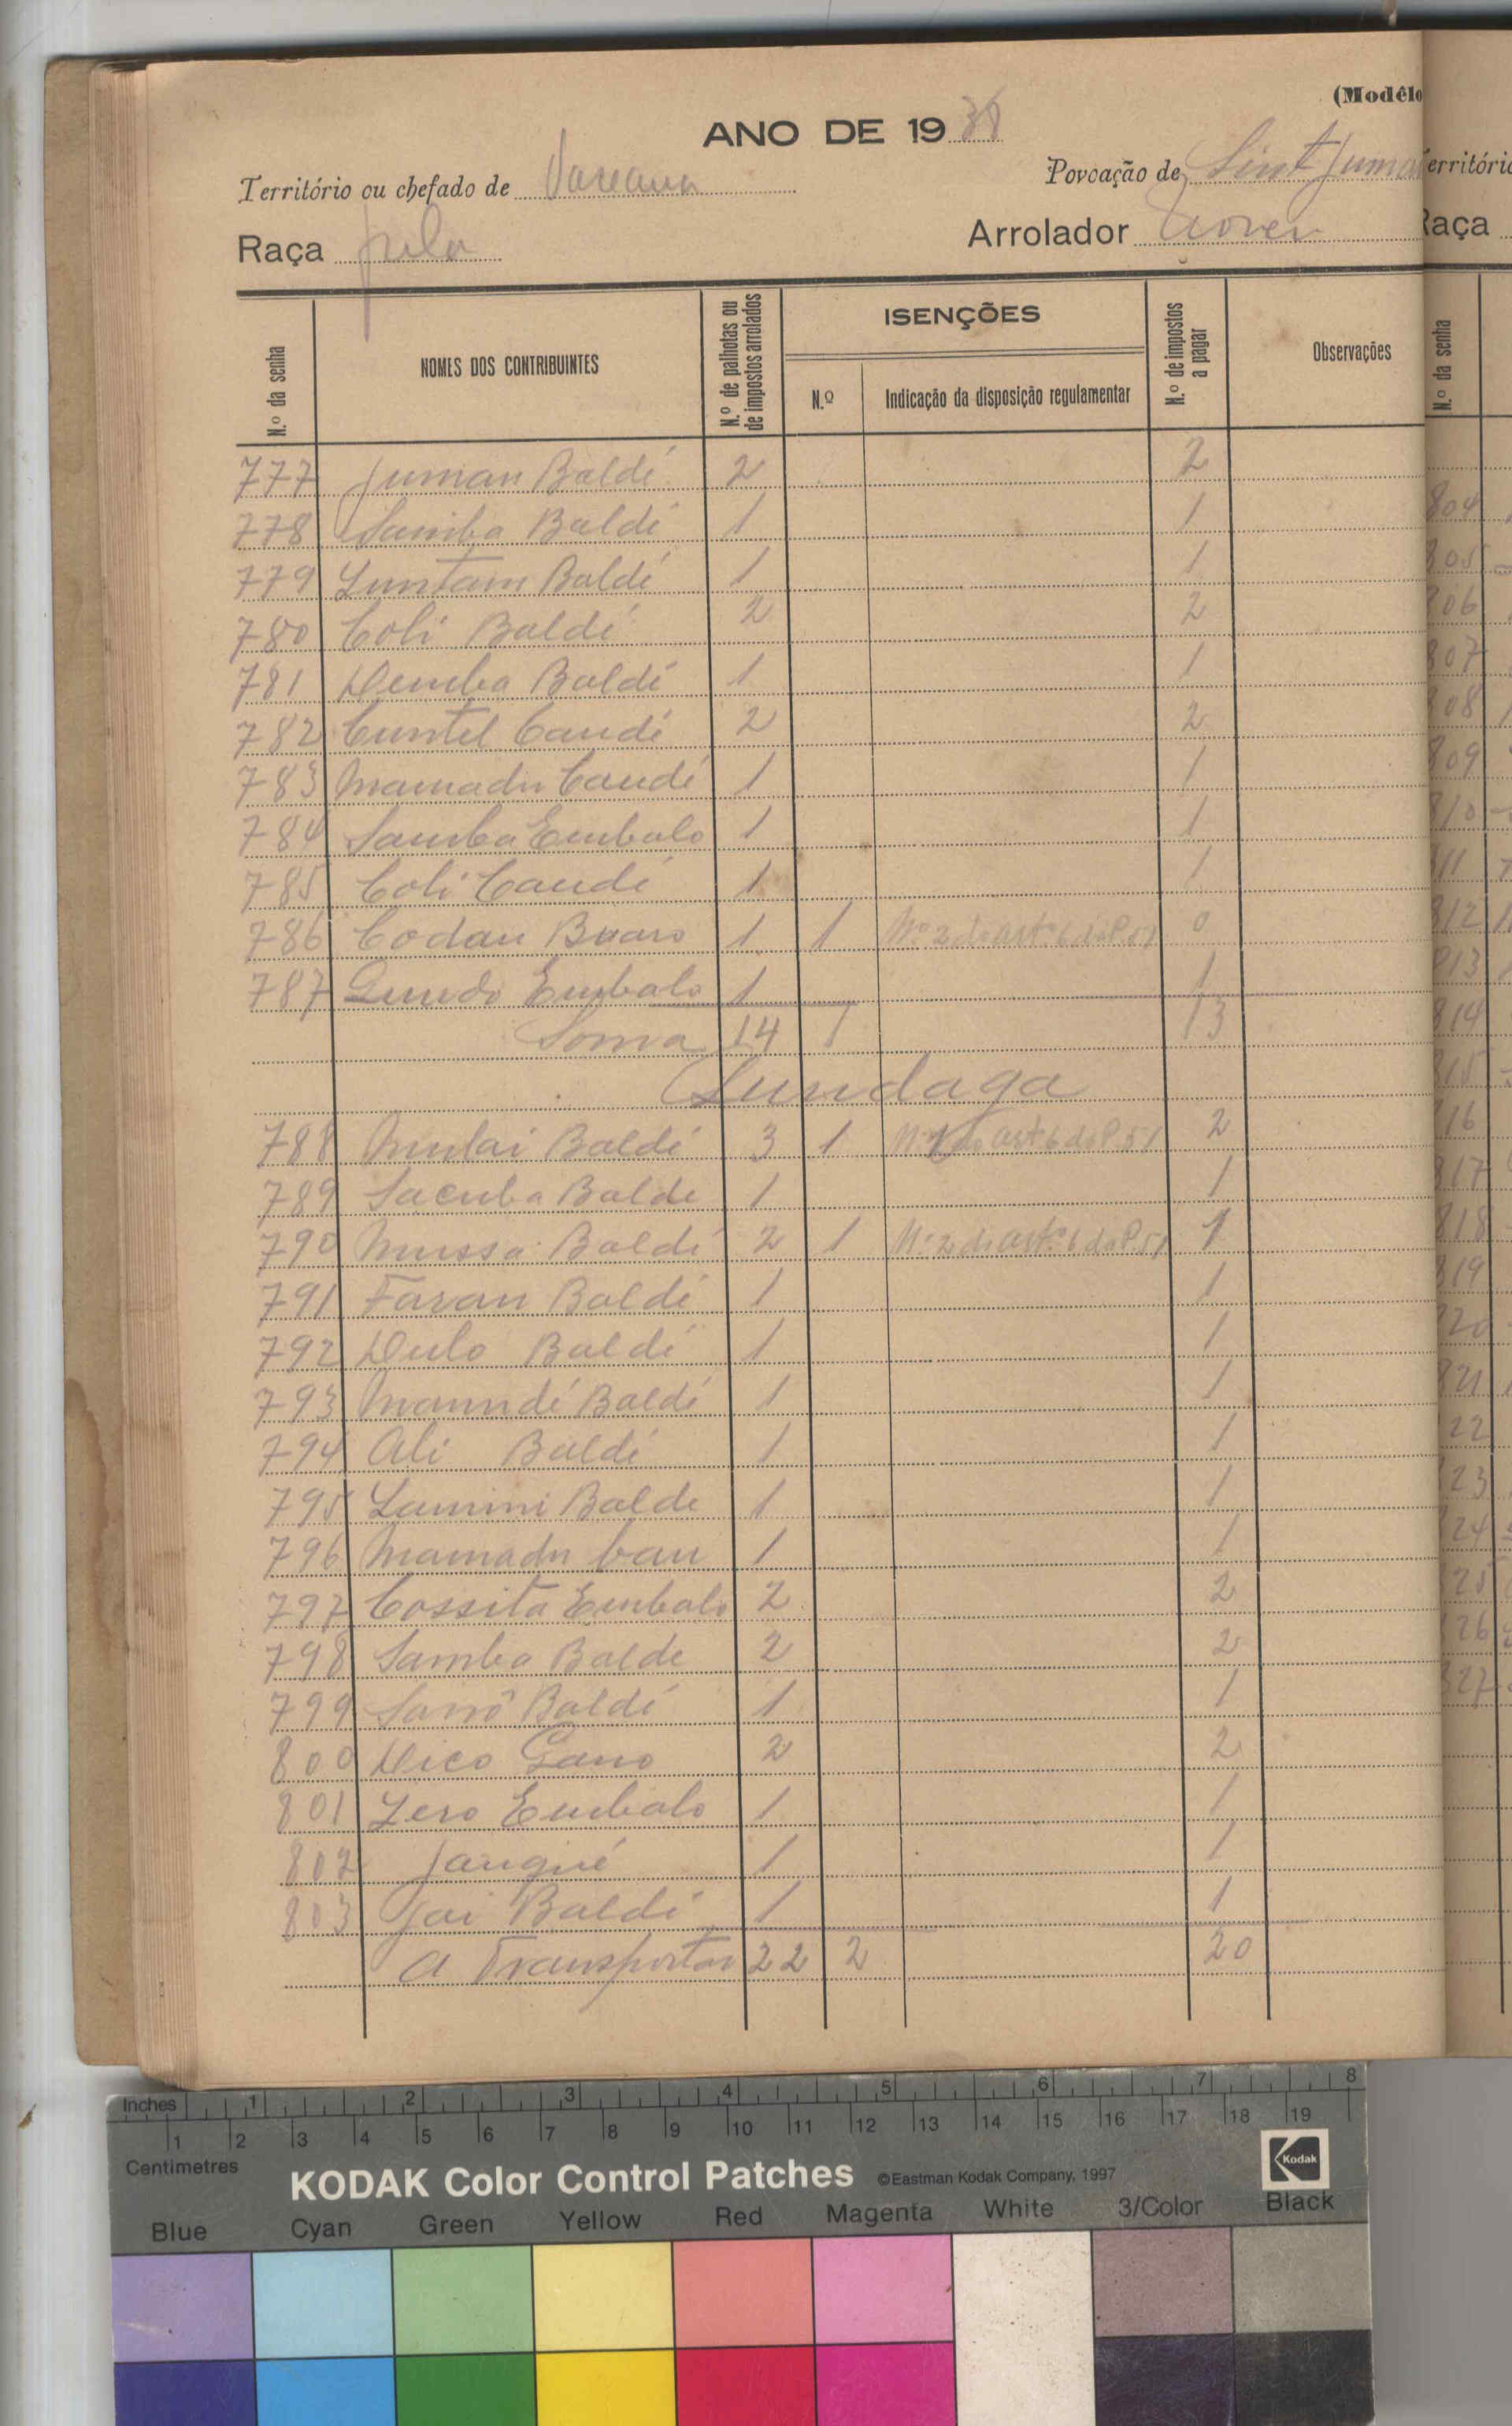 (Modêlo
ANO DE 1938
Território ou chefado de
Povoação de Sint Juma
Raça Fula
Arrolador
N.º da senha
NOMES DOS CONTRIBUINTES
N.º de palhotas ou de impostos arrolados
ISENÇÕES
N.º
Indicação da disposição regulamentar
N.º de impostos a pagar
Observações
777 Juman Baldé 2 2
778 Samba Baldé 1 1
779 Luntam Baldé 1 1
780 Coli Baldé 2 2
781 Demba Baldé 1 1
782 Cuntel Candé 2 2
783 Mamadu Candé 1 1
784 Samba Embalo 1 1
785 Coli Candé 1 1
786 Codau 1 1 N.º 2 do art.º 6 do P. 51 0
787 Embalo 1 1
Soma 14 1 13
Lundaga
788 Mulai Baldé 3 1 do art.º 6 do P. 51 2
789 Sacuba Balde 1 1
790 Mussa Baldé 2 1 N.º 2 do art.º 6 do P. 51 1
791 Faran Baldé 1 1
792 Dulo Baldé 1 1
793 Mamudé Baldé 1 1
794 Ali Baldé 1 1
795 Lamini Balde 1 1
796 Mamadu 1 1
797 Cossita Embalo 2 2
798 Samba Balde 2 2
799 Baldé 1 1
800 Dico Gano 2 2
801 Zero Embalo 1 1
802 Jangué 1 1
803 Jai Baldé 1 1
A Transportar 22 2 20
erritório
Raça
N.º da senha
804
805
806
807
808
809
810
811
812
813
814
815
816
817
818
819
820
821
822
823
824
825
826
827
Inches 1 2 3 4 5 6 7 8
1 2 3 4 5 6 7 8 9 10 11 12 13 14 15 16 17 18 19
Centimetres
KODAK Color Control Patches ©Eastman Kodak Company, 1997 Kodak
Blue Cyan Green Yellow Red Magenta White 3/Color Black